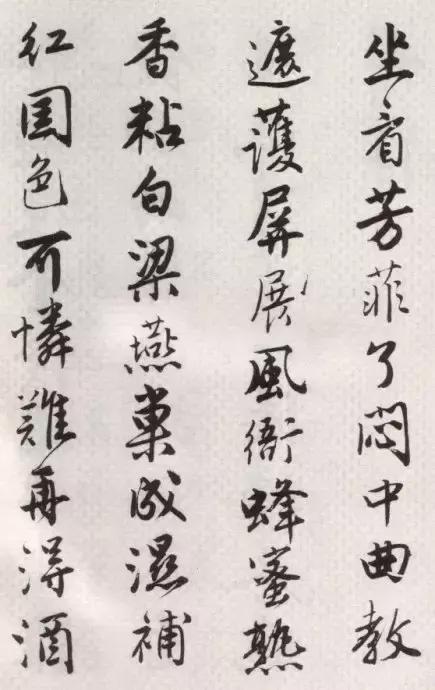 坐看芳菲了悶中曲教
遮護屏展風衙蜂蜜熟
香粘白梁燕巢成濕補
紅國色可憐難再得酒